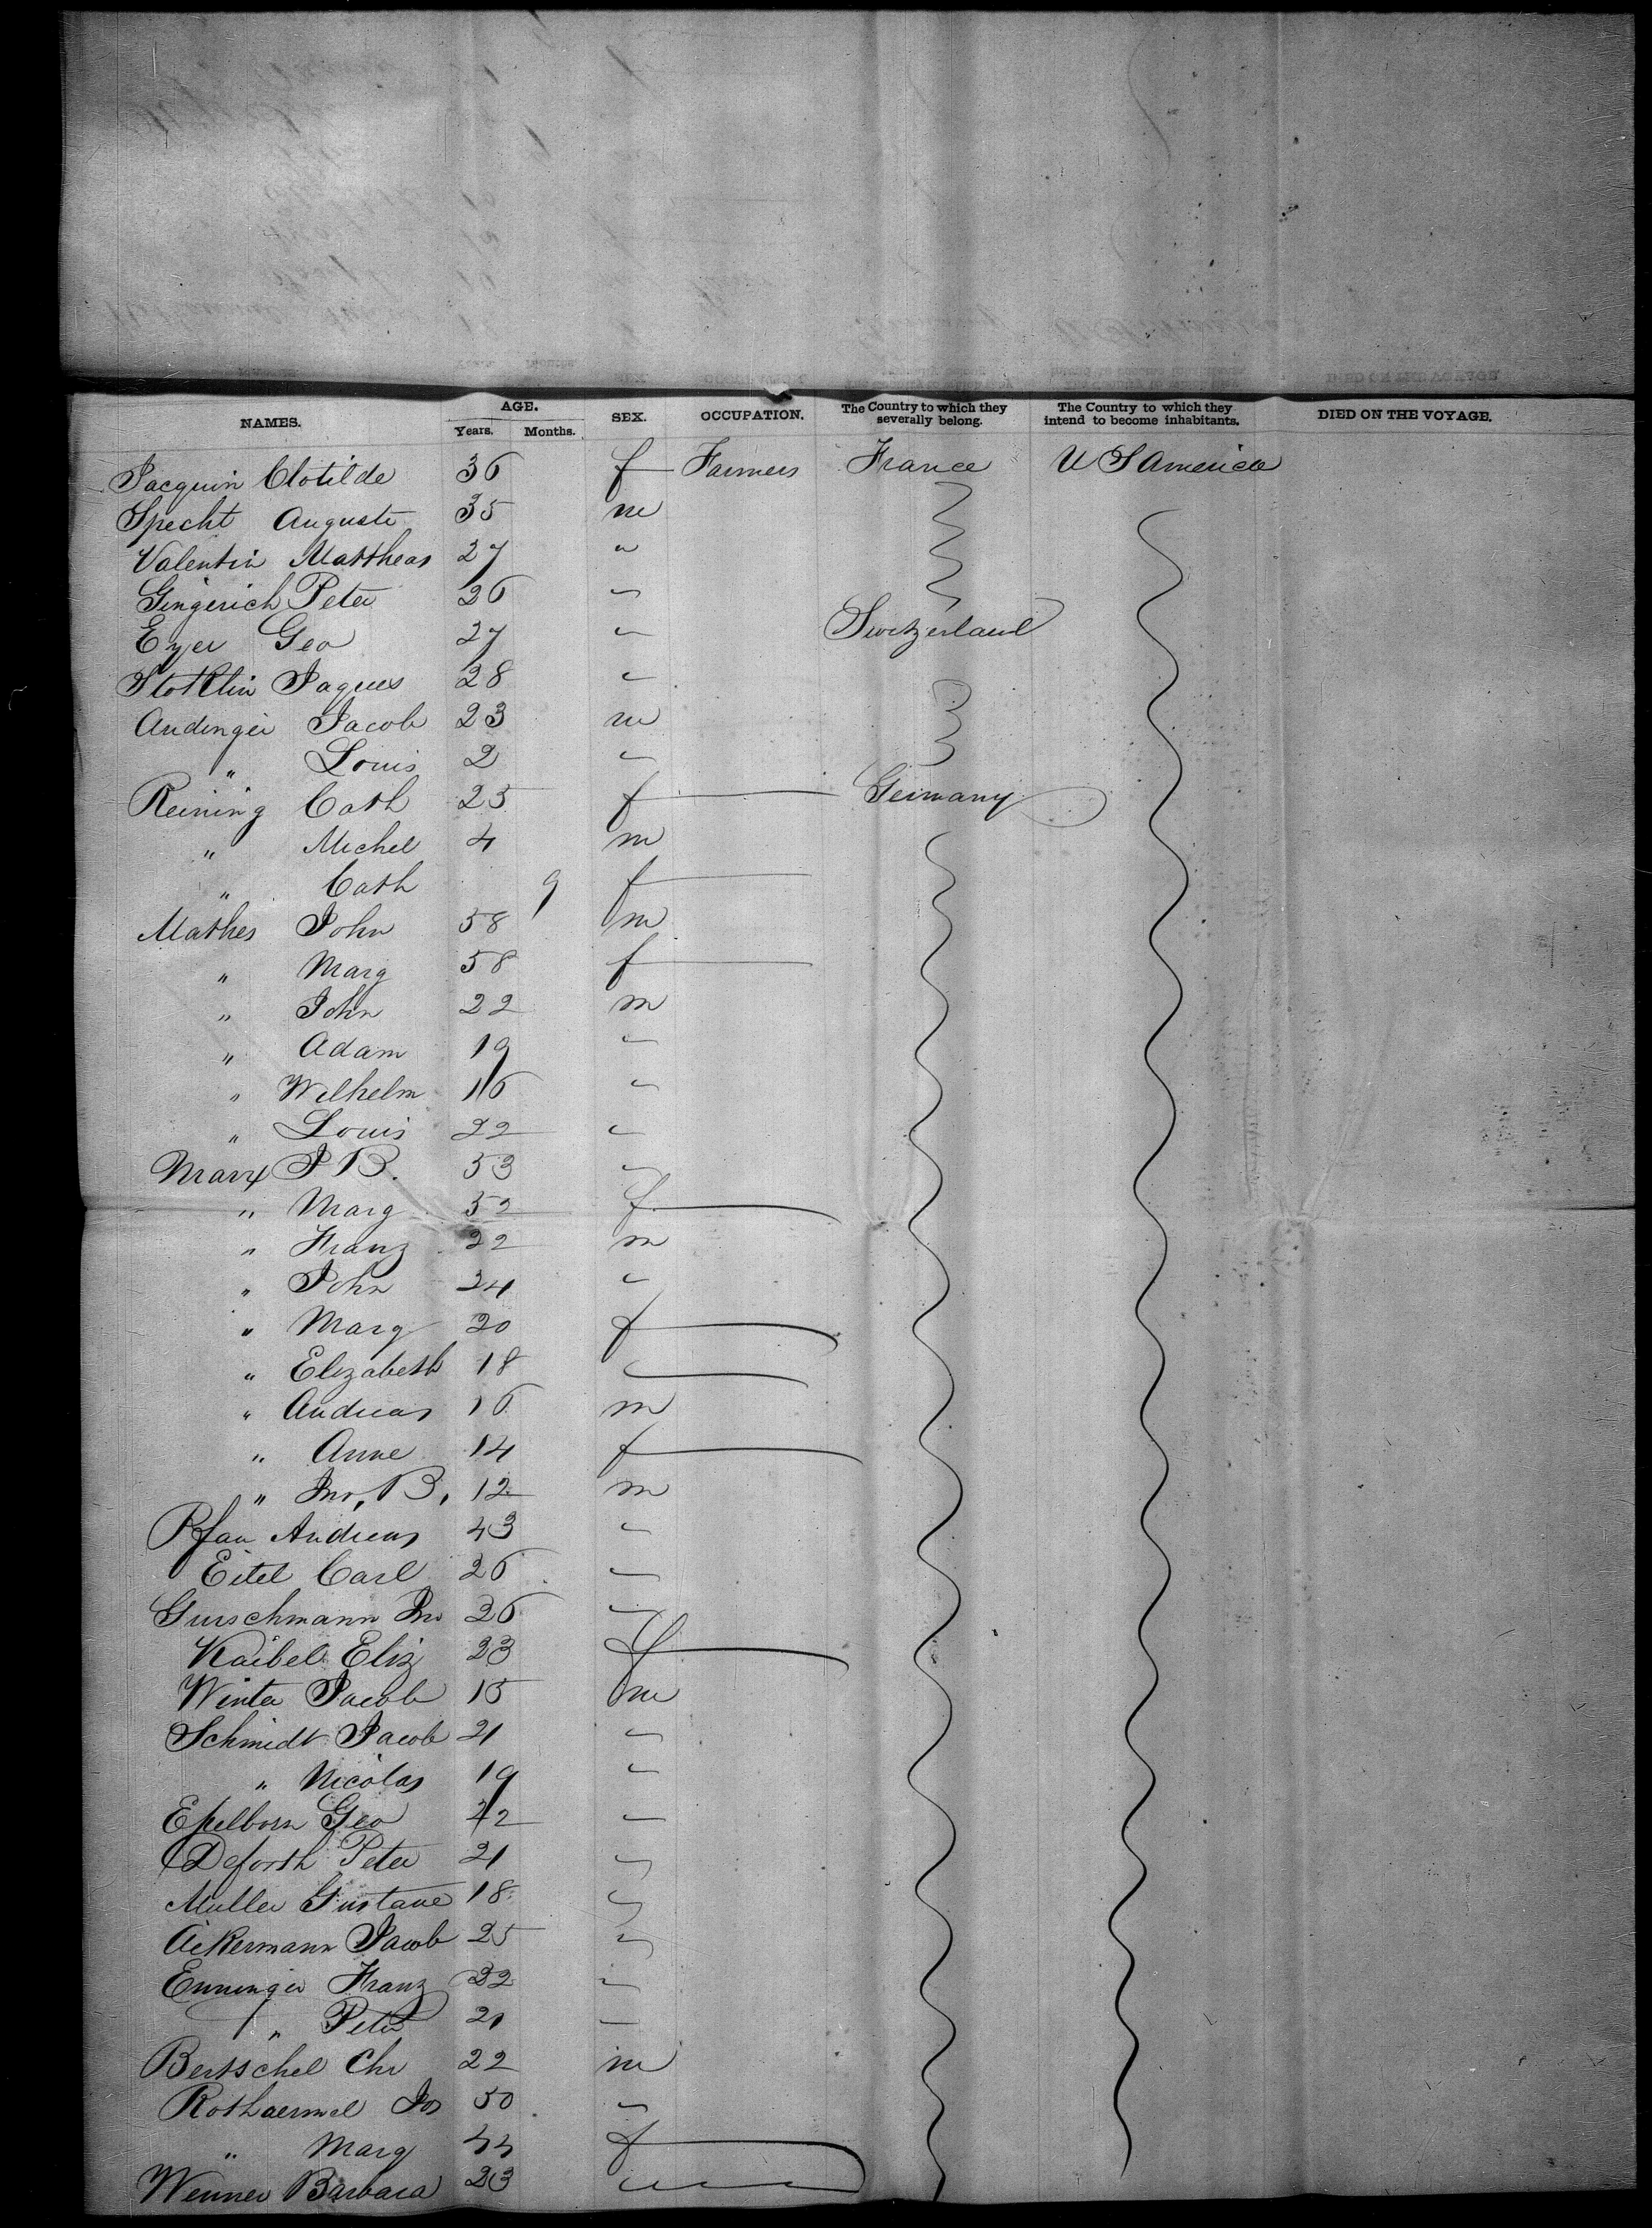 NAMES. AGE. Years. Months. SEX. OCCUPATION. The Country to which they severally belong. The Country to which they intend to become inhabitants. DIED ON THE VOYAGE.
Jacquin Clotilde 36 f Farmers France U S America
Specht Auguste 35 m
Valentin Mattheas 27 "
Gingerich Peter 26 "
Eyer Geo 27 " Switzerland
Stotklin Jaques 28 "
Audinger Jacob 23 m
" Louis 2 "
Reining Cath 25 f Germany
" Michel 4 m
" Cath 9 f
Mathes John 58 m
" Marg 58 f
" John 22 m
" Adam 19 "
" Wilhelm 16 "
" Louis 22 "
Marx J B. 53 "
" Marg 52 f
" Franz 22 m
" John 24 "
" Marg 20 f
" Elizabeth 18 "
" Andreas 16 m
" Anne 14 f
" Jno, B, 12 m
Pfau Andreas 43 "
Eitel Carl 26 "
Gurschmann Jno 26 "
Kaibel Eliz 23 f
Winter Jacob 15 m
Schmidt Jacob 21 "
" Nicolas 19 "
Epelborn Geo 22 "
Deforth Peter 21 "
Muller Gustave 18 "
Ackermann Jacob 25 "
Enninger Franz 32 "
" Peter 21 "
Bertschel Chr 22 m
Rothaermel Jos 50 "
" Marg 44 f
Wenner Barbara 23 "